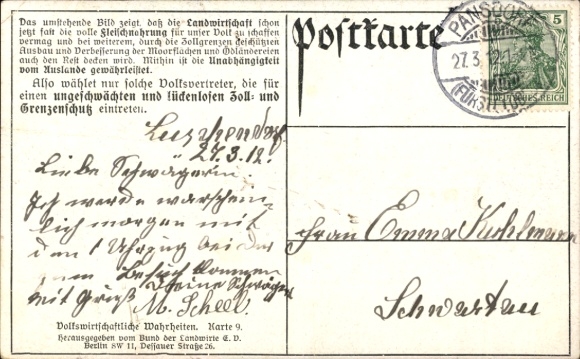 Das umstehende Bild zeigt, daß die Landwirtschaft schon
jetzt fast die volle Fleischnahrung für unser Volk zu schaffen
vermag und bei weiterem, durch die Zollgrenzen geschützten
Ausbau und Verbesserung der Moorflächen und Ödländereien
auch den Rest decken wird. Mithin ist die Unabhängigkeit
vom Auslande gewährleistet.
Also wählet nur solche Volksvertreter, die für
einen ungeschwächten und lückenlosen Zoll- und
Grenzenschutz eintreten.
Postkarte
PANSDORF
27.3.12
(FÜRSTT.
5
DEUTSCHES REICH
27.3.12.
Liebe Schwägerin.
Ich werde warschein
lich morgen mit
den 1 Uhrzug bei dir
zum Besuch kommen
mit Gruß Deine Schwägerin
M. Scheel.
Frau Emma Kuhlmann
Schwartau
Volkswirtschaftliche Wahrheiten. Karte 9.
Herausgegeben vom Bund der Landwirte E. V.
Berlin SW 11, Dessauer Straße 26.